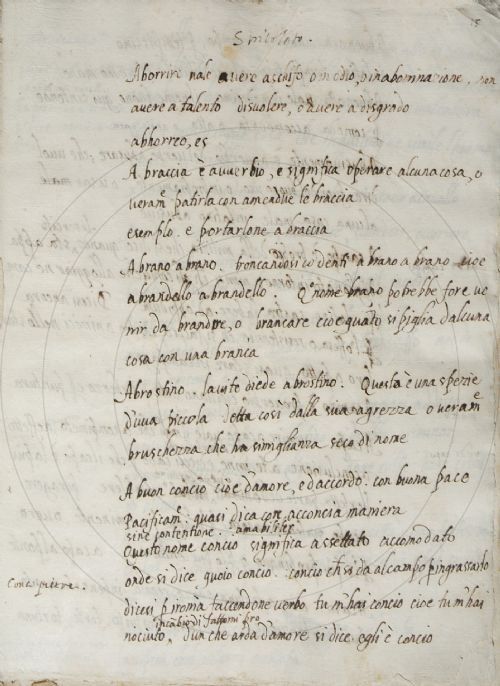 Aborrire vale avere a schifo o in odio, o in abominazione, non
avere a talento disvolere, o avere a disgrado
abhorreo, es
A braccia è avverbio, e significa operare alcuna cosa, o
veram.e patirla con amendue le braccia
esemplo. e portarlone a braccia
A brano a brano. troncandosi co denti a brano a brano cioe
a brandello a brandello. Q.o nome brano potrebbe forse ve
nir da brandire, o brancare cioe quãto si piglia d alcuna
cosa con una branca
Abrostino. la vite diede abrostino. Questa è una spezie
d'uva piccola detta così dalla sua agrezza o veram.e
bruschezza che ha simiglianza seco di nome
A buon concio cioe d'amore, e d'accordo. con buona pace
Pacificam.e quasi dica con acconcia maniera
sine contentione. amabiliter
Questo nome concio significa assettato accomodato
onde si dice quoio concio. concio che si da al campo p ingrassarlo
Conci pietre.
dicesi p ironia faccendone verbo tu m'hai concio cioe tu m'hai
in cabio di
nociuto, d'un che arda d'amore si dice egli è concio